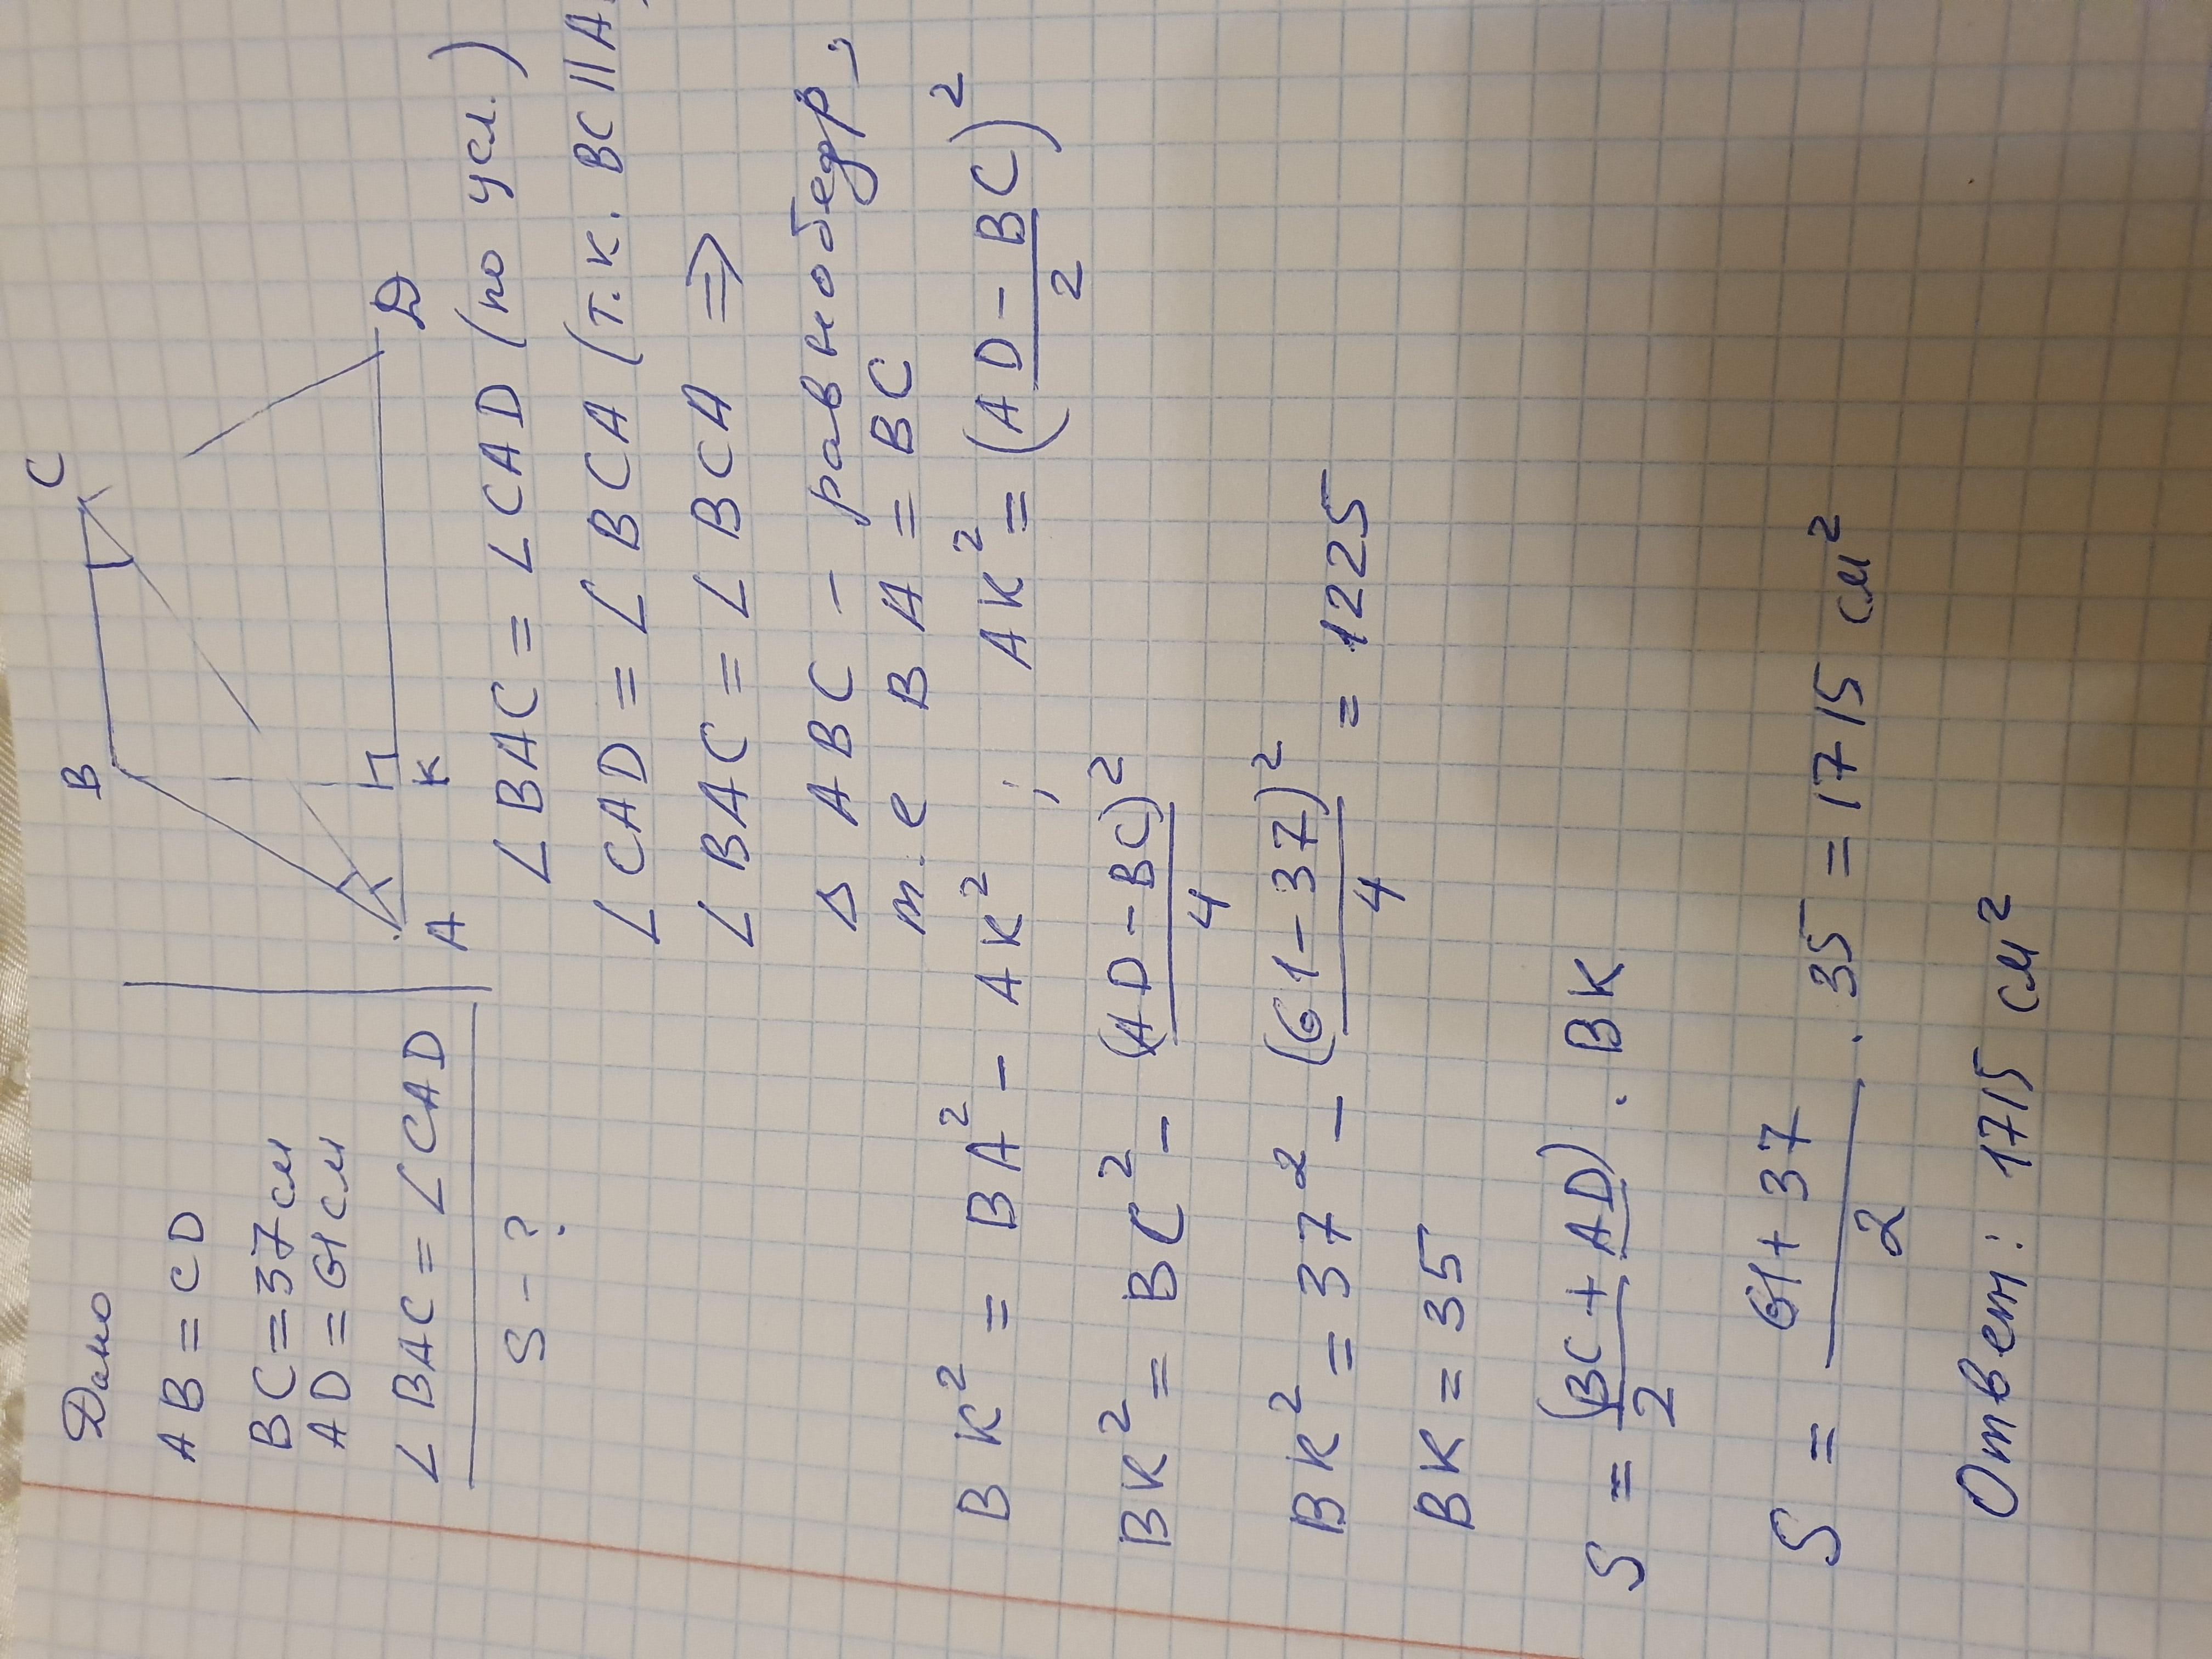 Дано
AB = CD
BC = 37 см
AD = 61 см
∠BAC = ∠CAD
S - ?
B
C
A
K
D
∠BAC = ∠CAD (по усл.)
∠CAD = ∠BCA (т.к. BC || A
∠BAC = ∠BCA ⇒
Δ ABC – равнобедр,
т.е BA = BC
BK² = BA² - AK² ; AK² = (AD - BC / 2)²
BK² = BC² - (AD - BC)² / 4
BK² = 37² - (61 - 37)² / 4 = 1225
BK = 35
S = (BC + AD) / 2 · BK
S = 61 + 37 / 2 · 35 = 1715 см²
Ответ: 1715 см²